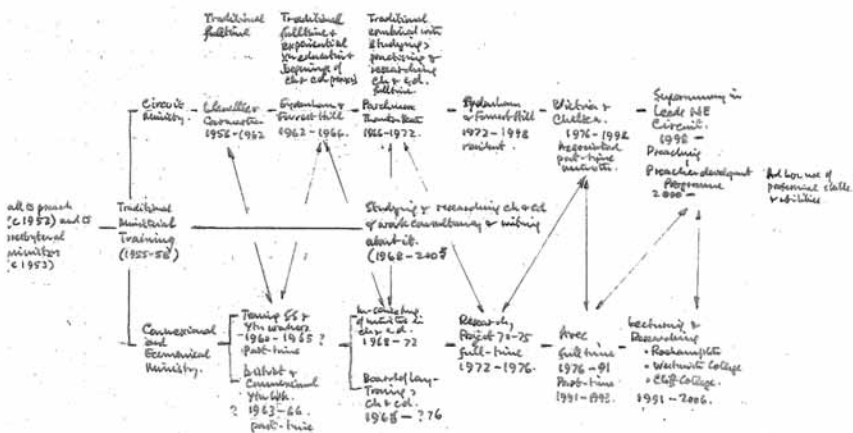 Traditional
fulltime
Traditional
fulltime &
experiential
education &
beginnings of
ch & cd
Traditional
combined with
studying,
practising &
researching
ch & cd.
fulltime
Circuit
Ministry.
1958-1962
Sydenham &
Forest Hill
1962-1966.
Parchmore
Thornton Heath
1966-1972.
Sydenham
& Forest Hill
1972-1998
resident.
Victoria &
Chelsea.
1976-1992
Associated
part-time
minister.
Supernumerary in
Leeds NE
Circuit.
1998 -
Preaching
Preacher development
Programme
2000 -
Ad hoc use of
professional skills
& abilities
call to preach
(c 1952) and to
presbyteral
ministry
(c 1953)
Traditional
Ministerial
Training
(1955-58)
Studying & researching ch & cd
& work consultancy & writing
about it.
(1968-2005
Connexional
and
Ecumenical
Ministry.
Training SS &
Yth workers
1960-1965 ?
Part-time
District &
Connexional
Yth
? 1963-66.
part-time
of ministers in
ch & cd.
1968-72
Board of Lay-
Training
ch & cd.
1968-?76
Research,
Project 70-75
full-time
1972-1976.
Avec
full time
1976-91
Part-time
Lecturing &
Researching
• Roehampton
• Westminster College
• Cliff College
1991-2006.